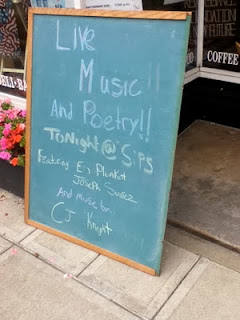 Live
Music!!
And Poetry!!
Tonight @ Sips
Featuring E, Plunkat
Joseph Suarez
And Music by:
CJ Knight
COFFEE
DELI-BA